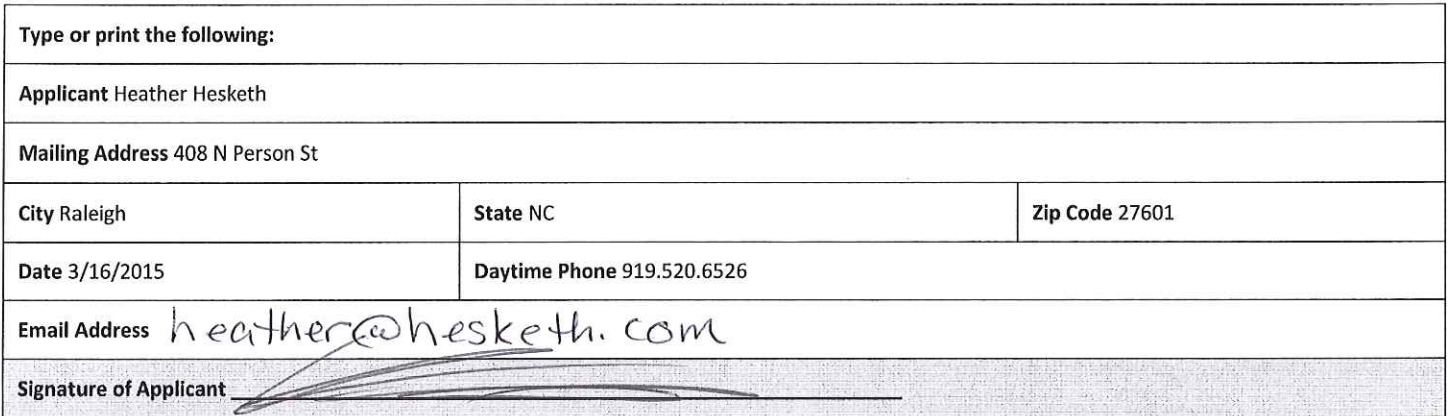 Type or print the following:
Applicant Heather Hesketh
Mailing Address 408 N Person St
City Raleigh State NC Zip Code 27601
Date 3/16/2015 Daytime Phone 919.520.6526
Email Address heather@hesketh.com
Signature of Applicant